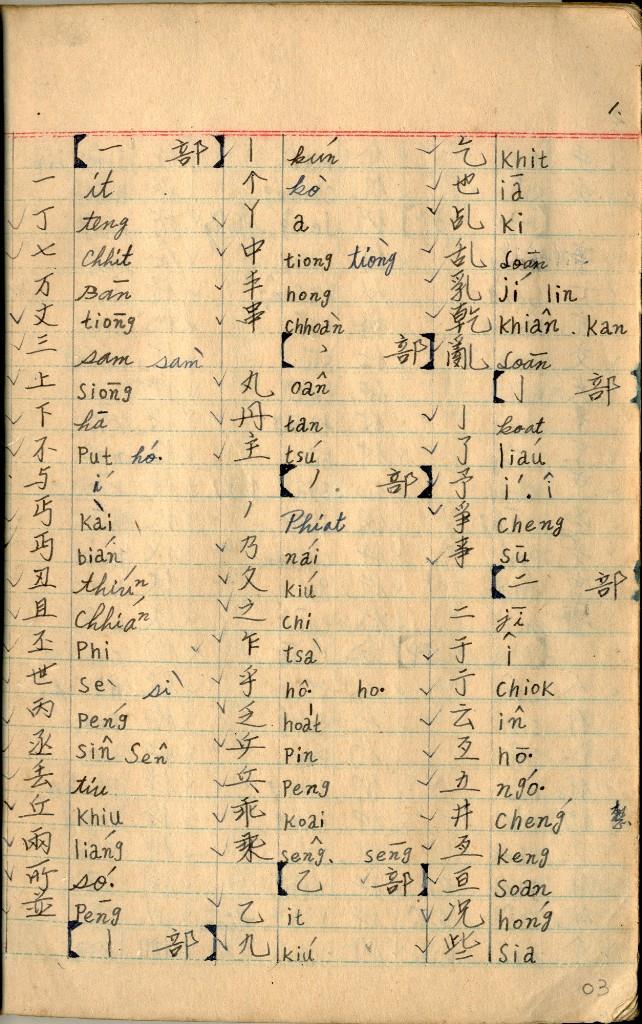 1.
【一 部】
一 it
丁 teng
七 chhit
万 Bān
丈 tiōng
三 sam samˋ
上 siōng
下 hā
不 Put hó͘
与 í
丐 Kài
丏 bián
丑 thiúⁿ
且 Chhiáⁿ
丕 Phi
世 Sè sì
丙 Péng
丞 Sîn Sên
丟 tiu
丘 Khiu
兩 liáng
所 só͘
並 Pēng
【丨 部】
丨 kún
个 kò
丫 a
中 tiong tiòng
丰 hong
串 chhoàn
【丶 部】
丸 oân
丹 tan
主 tsú
【丿 部】
丿 Phiat
乃 nái
久 kiú
之 chi
乍 tsà
乎 hô͘ ho͘
乏 hoa̍t
乒 Pin
乓 Peng
乖 Koai
乘 sêng. sēng
【乙 部】
乙 it
九 kiú
乞 Khit
也 iā
乩 Ki
乱 Loān
乳 jí lin
乾 Khiân . Kan
亂 Loān
【亅 部】
亅 koat
了 liáu
予 í . î
爭 Cheng
事 Sū
【二 部】
二 jī
于 î
亍 Chiok
云 în
互 hō͘
五 ngó͘
井 Chéng
亙 Keng
亘 Soan
况 hóng
些 Sia
03